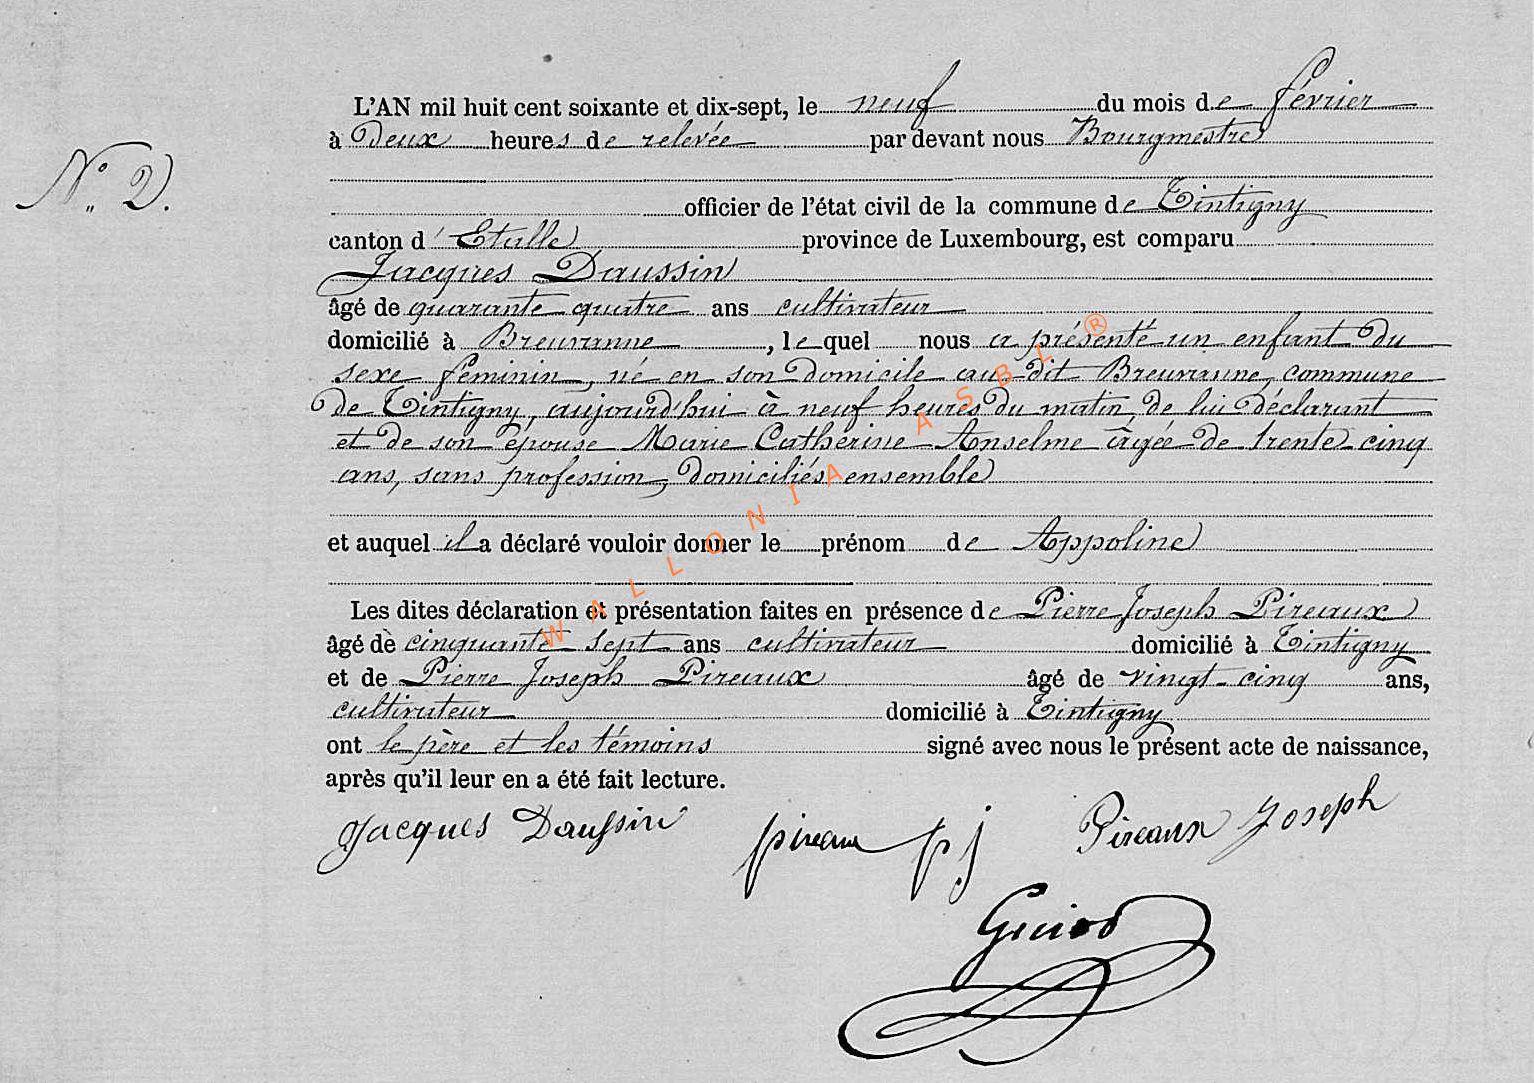 L'AN mil huit cent soixante et dix-sept, le neuf du mois de février
N° 2.
à Deux heures de relevée par devant nous Bourgmestre
officier de l'état civil de la commune de Tintigny
canton d'Etalle province de Luxembourg, est comparu
Jacques Daussin
âgé de quarante quatre ans cultivateur
domicilié à Breuvanne, le quel nous a présenté un enfant du
sexe féminin, né en son Domicile au dit Breuvanne, commune
de Tintigny, aujourd'hui à neuf heures Du matin, de lui Déclarant
et de son épouse Marie Catherine Anselme âgée de trente cinq
ans, sans profession, Domiciliés ensemble
et auquel il a déclaré vouloir donner le prénom de Appoline
Les dites déclaration et présentation faites en présence de Pierre Joseph Pireaux
âgé de cinquante sept ans cultivateur domicilié à Tintigny
et de Pierre Joseph Pireaux âgé de vingt-cinq ans,
cultivateur domicilié à Tintigny
ont le père et les témoins signé avec nous le présent acte de naissance,
après qu'il leur en a été fait lecture.
Jacques Daussin pireaux pj Pireaux Joseph
WALLONIA ASBL ®